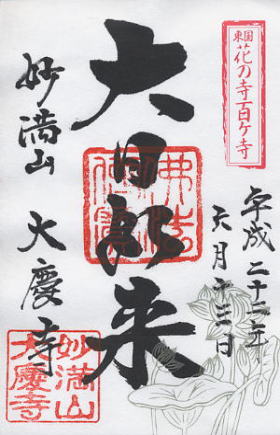 東国
花の寺百ヶ寺
平成二十二年
六月十三日
大日如来
佛法
僧寶
妙満山
大慶寺
妙満山
大慶寺